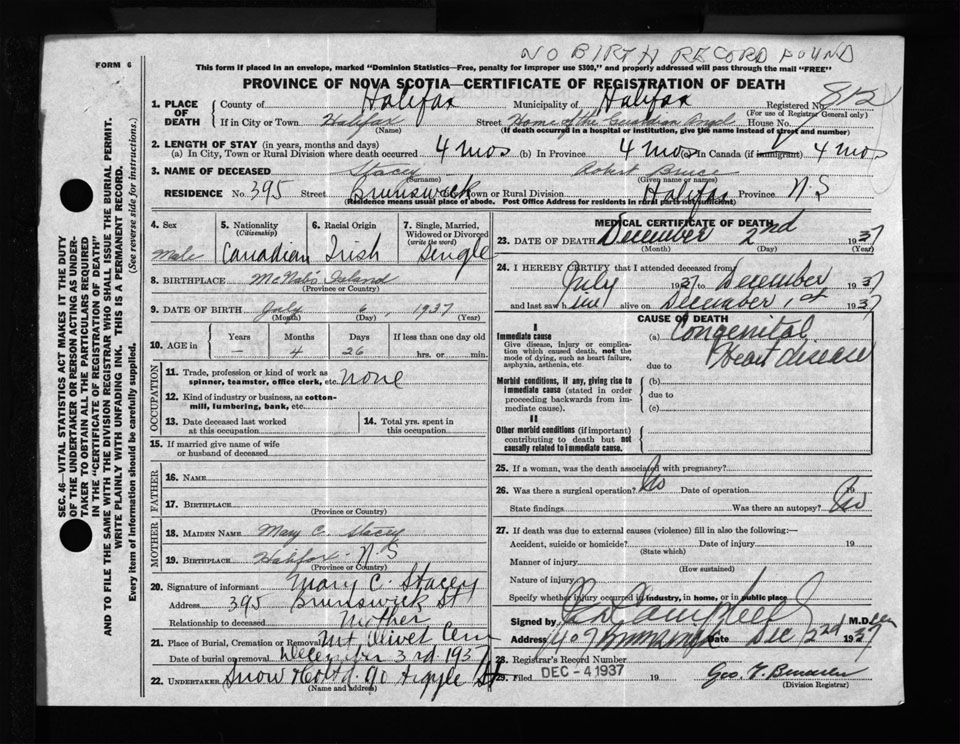 NO BIRTH RECORD FOUND
FORM 6
This form if placed in an envelope, marked "Dominion Statistics—Free, penalty for improper use $300," and properly addressed will pass through the mail "FREE"
PROVINCE OF NOVA SCOTIA—CERTIFICATE OF REGISTRATION OF DEATH
1. PLACE OF DEATH County of Halifax Municipality of Halifax Registered No. 812
(For use of Registrar General only)
If in City or Town Halifax Street Home of the Guardian Angel House No.
(Name) (If death occurred in a hospital or institution, give the name instead of street and number)
2. LENGTH OF STAY (in years, months and days)
(a) In City, Town or Rural Division where death occurred 4 mos (b) In Province 4 mos (c) In Canada (if immigrant) 4 mos
3. NAME OF DECEASED Stacey Robert Bruce
(Surname) (Given name or names)
RESIDENCE No. 395 Street Brunswick City, Town or Rural Division Halifax Province N.S
(Residence means usual place of abode. Post Office Address for residents in rural parts not sufficient)
4. Sex Male
5. Nationality (Citizenship) Canadian
6. Racial Origin Irish
7. Single, Married, Widowed or Divorced (write the word) Single
8. BIRTHPLACE McNab's Island
(Province or Country)
9. DATE OF BIRTH July 6, 1937
(Month) (Year)
10. AGE in Years Months Days If less than one day old
— 4 26 hrs. or min.
OCCUPATION
11. Trade, profession or kind of work as spinner, teamster, office clerk, etc. none
12. Kind of industry or business, as cotton-mill, lumbering, bank, etc.
13. Date deceased last worked at this occupation
14. Total yrs. spent in this occupation
15. If married give name of wife or husband of deceased
FATHER
16. NAME
17. BIRTHPLACE
(Province or Country)
MOTHER
18. MAIDEN NAME Mary C. Stacey
19. BIRTHPLACE Halifax N.S
(Province or Country)
20. Signature of informant Mary C. Stacey
Address 395 Brunswick St
Relationship to deceased Mother
21. Place of Burial, Cremation or Removal Mt Olivet Cem
Date of burial or removal December 3rd 1937
22. UNDERTAKER Snow & Co Ltd. 90 Argyle St
(Name and address)
MEDICAL CERTIFICATE OF DEATH
23. DATE OF DEATH December 2nd 1937
(Month) (Day) (Year)
24. I HEREBY CERTIFY that I attended deceased from
July 1937 to December 1937
and last saw him alive on December 1st 1937
CAUSE OF DEATH
I
Immediate cause
Give disease, injury or complication which caused death, not the mode of dying, such as heart failure, asphyxia, asthenia, etc.
(a) Congenital Heart disease
due to
Morbid conditions, if any, giving rise to immediate cause (stated in order proceeding backwards from immediate cause).
(b)
due to
(c)
II
Other morbid conditions (if important) contributing to death but not causally related to immediate cause.
25. If a woman, was the death associated with pregnancy?
26. Was there a surgical operation? No Date of operation 19
State findings Was there an autopsy? No
27. If death was due to external causes (violence) fill in also the following:—
Accident, suicide or homicide? Date of injury 19
(State which)
Manner of injury
(How sustained)
Nature of injury
Specify whether injury occurred in industry, in home, or in public place
Signed by Campbell M.D.
Address Date Dec 2nd 1937
28. Registrar's Record Number
29. Filed DEC -4 1937 19 Geo. F.
(Division Registrar)
SEC. 46—VITAL STATISTICS ACT MAKES IT THE DUTY
OF THE UNDERTAKER OR PERSON ACTING AS UNDER-
TAKER TO OBTAIN ALL THE PARTICULARS REQUIRED
IN THE "CERTIFICATE OF REGISTRATION OF DEATH"
AND TO FILE THE SAME WITH THE DIVISION REGISTRAR WHO SHALL ISSUE THE BURIAL PERMIT.
WRITE PLAINLY WITH UNFADING INK. THIS IS A PERMANENT RECORD.
Every item of information should be carefully supplied. (See reverse side for instructions.)